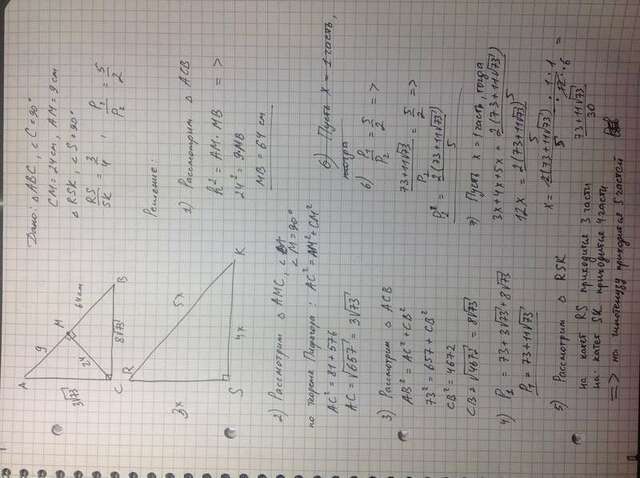 Дано: △ABC, ∠C=90°
CM=24 см, AM=9 см
△RSK, ∠S=90°
RS/SK = 3/4, P₁/P₂ = 5/2
A
9
M
64 см
B
3√73
24
8√73
C
R
5x
K
3x
4x
S
Решение:
1) Рассмотрим △ACB
h² = AM·MB =>
24² = 9·MB
MB = 64 см
2) Рассмотрим △AMC,
∠M=90°
по теореме Пифагора: AC² = AM²+CM²
AC² = 81+576
AC = √657 = 3√73
3) Рассмотрим △ACB
AB² = AC²+CB²
73² = 657+CB²
CB² = 4672
CB = √4672 = 8√73
4) P₁ = 73+3√73+8√73
P₁ = 73+11√73
5) Рассмотрим △RSK
на катет RS приходится 3 части
на катет SK приходится 4 части
=> на гипотенузу приходится 5 частей
6) Пусть x = 1 часть,
тогда
6) P₁/P₂ = 5/2 =>
73+11√73/P₂ = 5/2 =>
P₂ = 2(73+11√73)/5
7) Пусть x = 1 часть, тогда
3x+4x+5x = 2(73+11√73)/5
12x = 2(73+11√73)/5
x = 2(73+11√73)/5 · 1/12 6 =
73+11√73/30